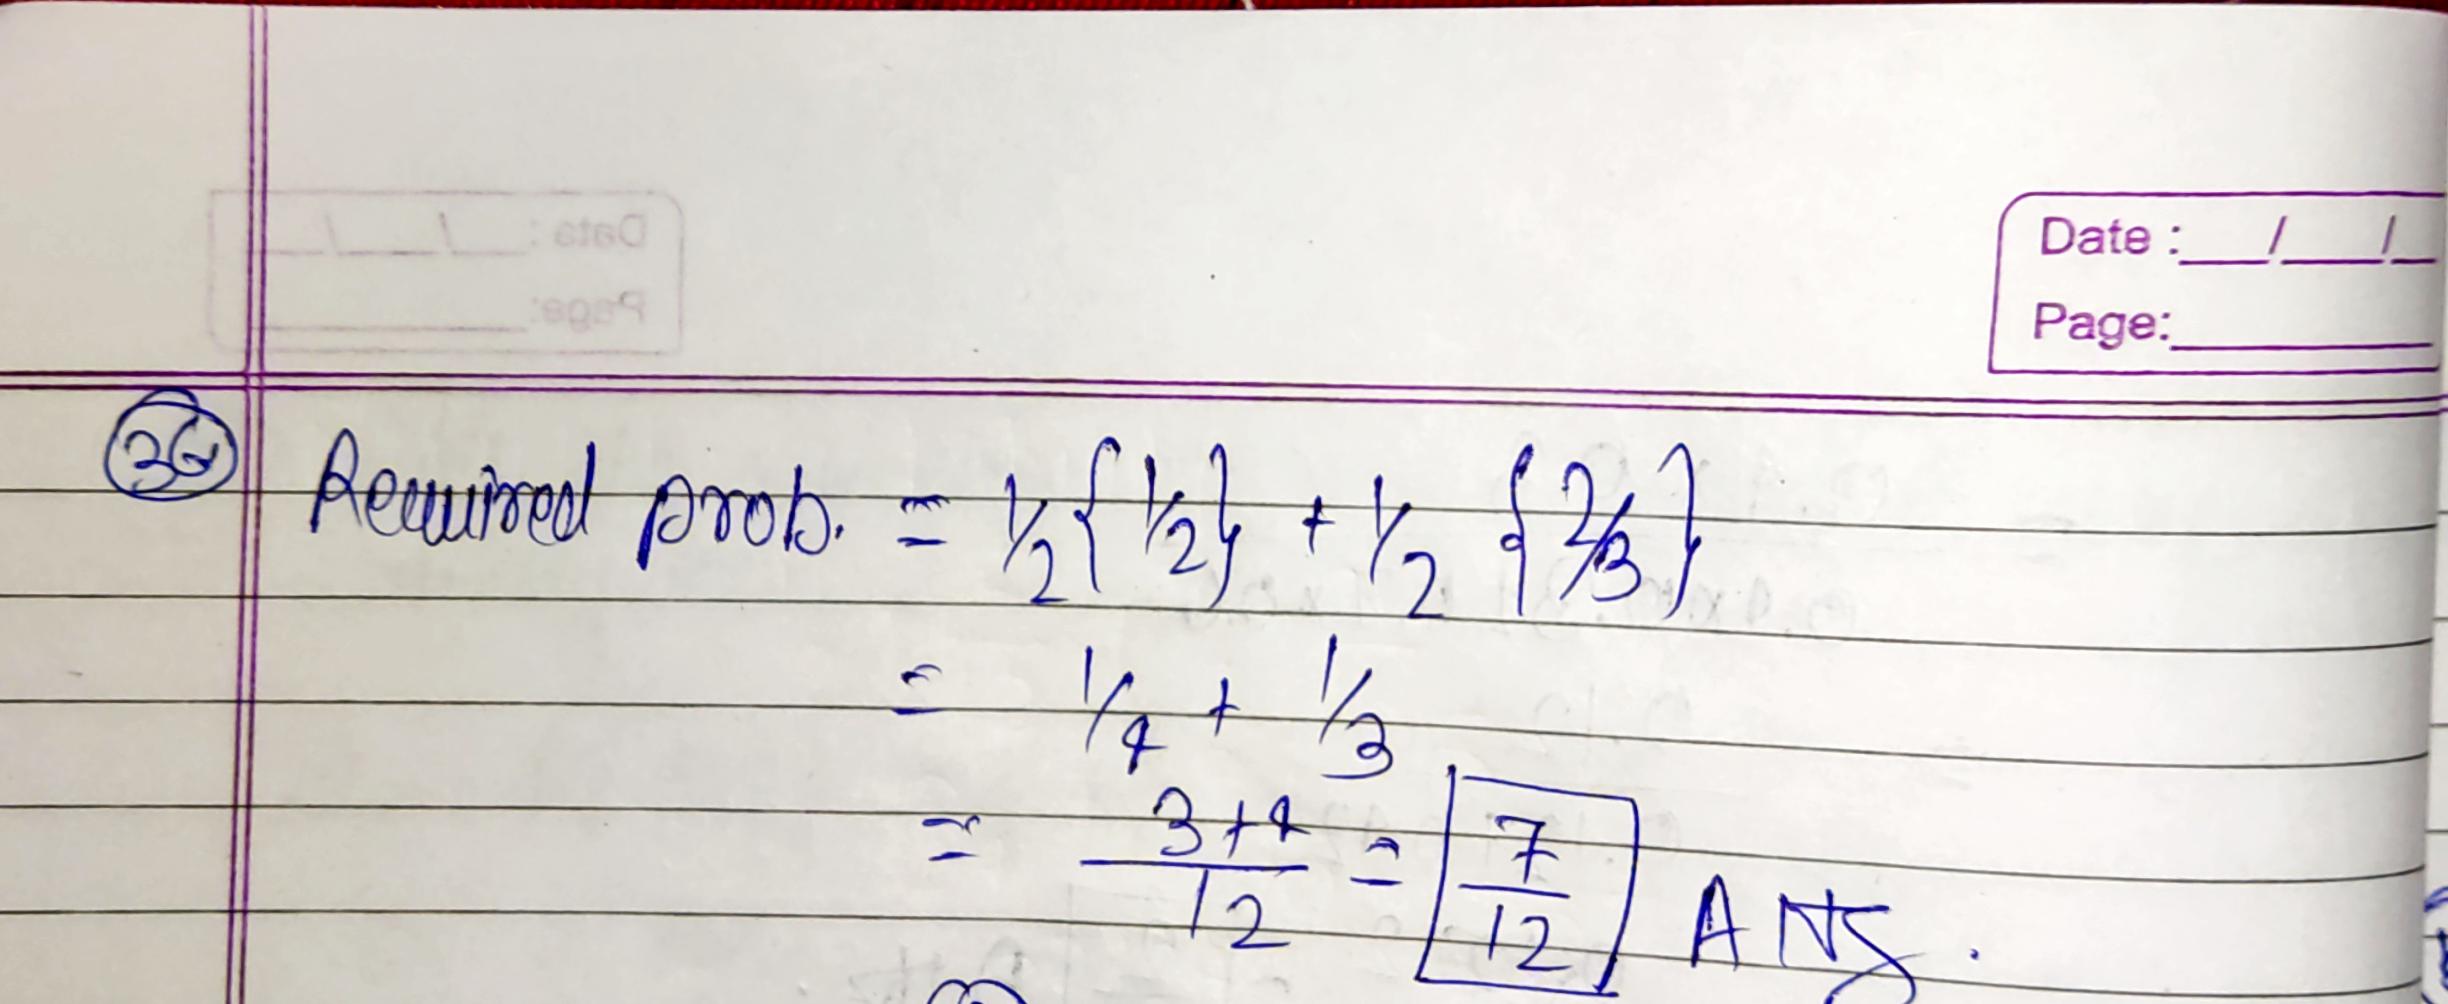 Date : __/__/_
Page: ______
Date : __/__/__
Page: ______
36 Required prob. = 1/2 { 1/2 } + 1/2 { 2/3 }
= 1/4 + 1/3
= 3+4/12 = 7/12 Ans.